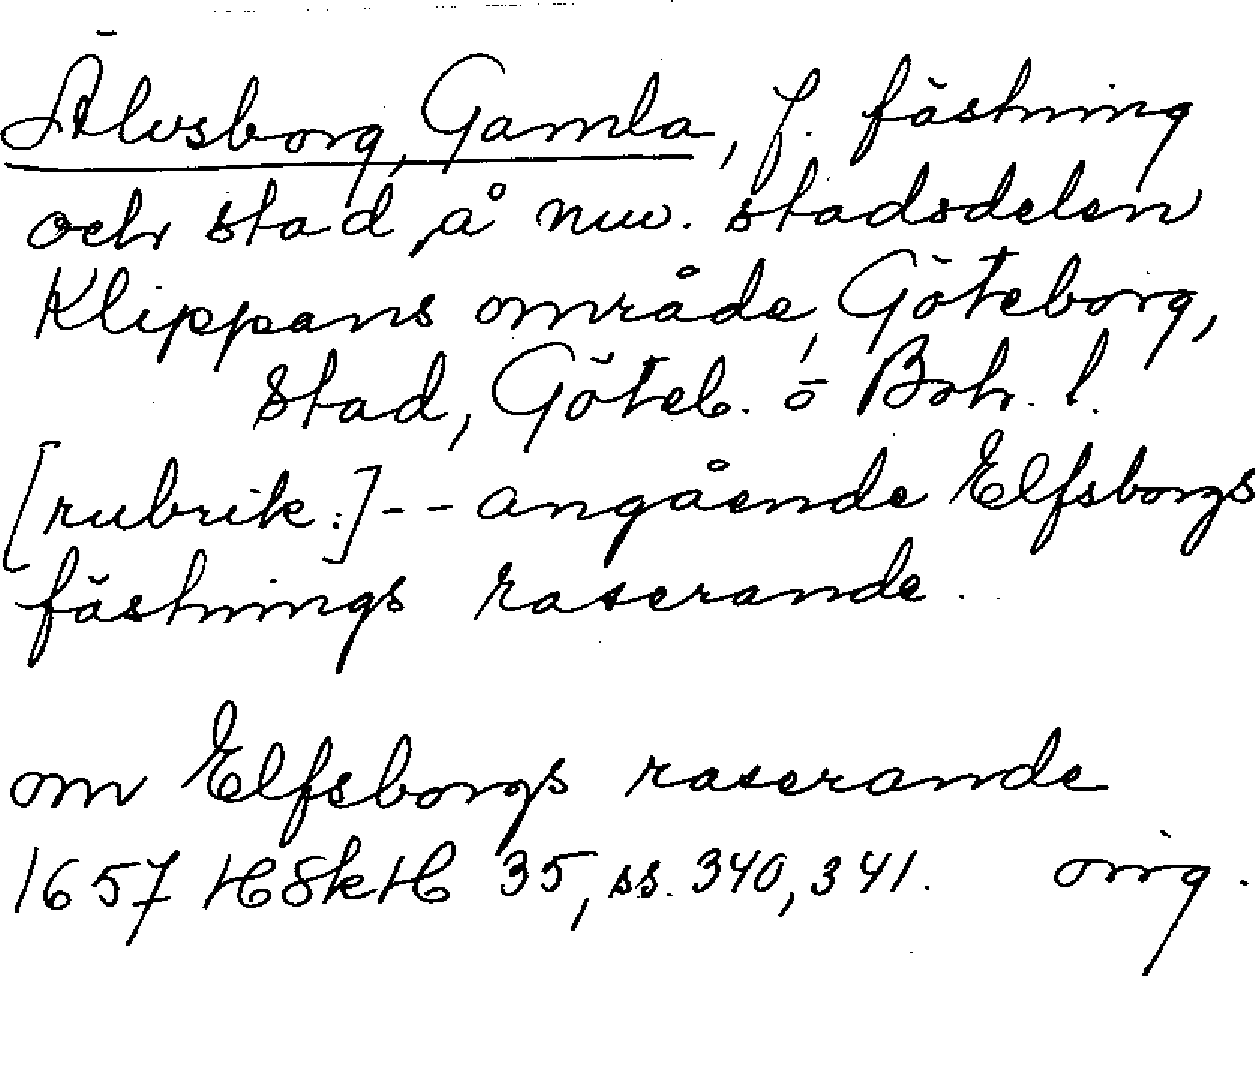 Älvsborg, Gamla, f. fästning
och stad, å nuv. stadsdelen
Klippans område, Göteborg,
stad, Göteb. o Boh. l.
[rubrik:] -- angående Elfsborgs
fästnings raserande.
om Elfsborgs raserande
1657 HSkH 35, ss. 340, 341. orig.